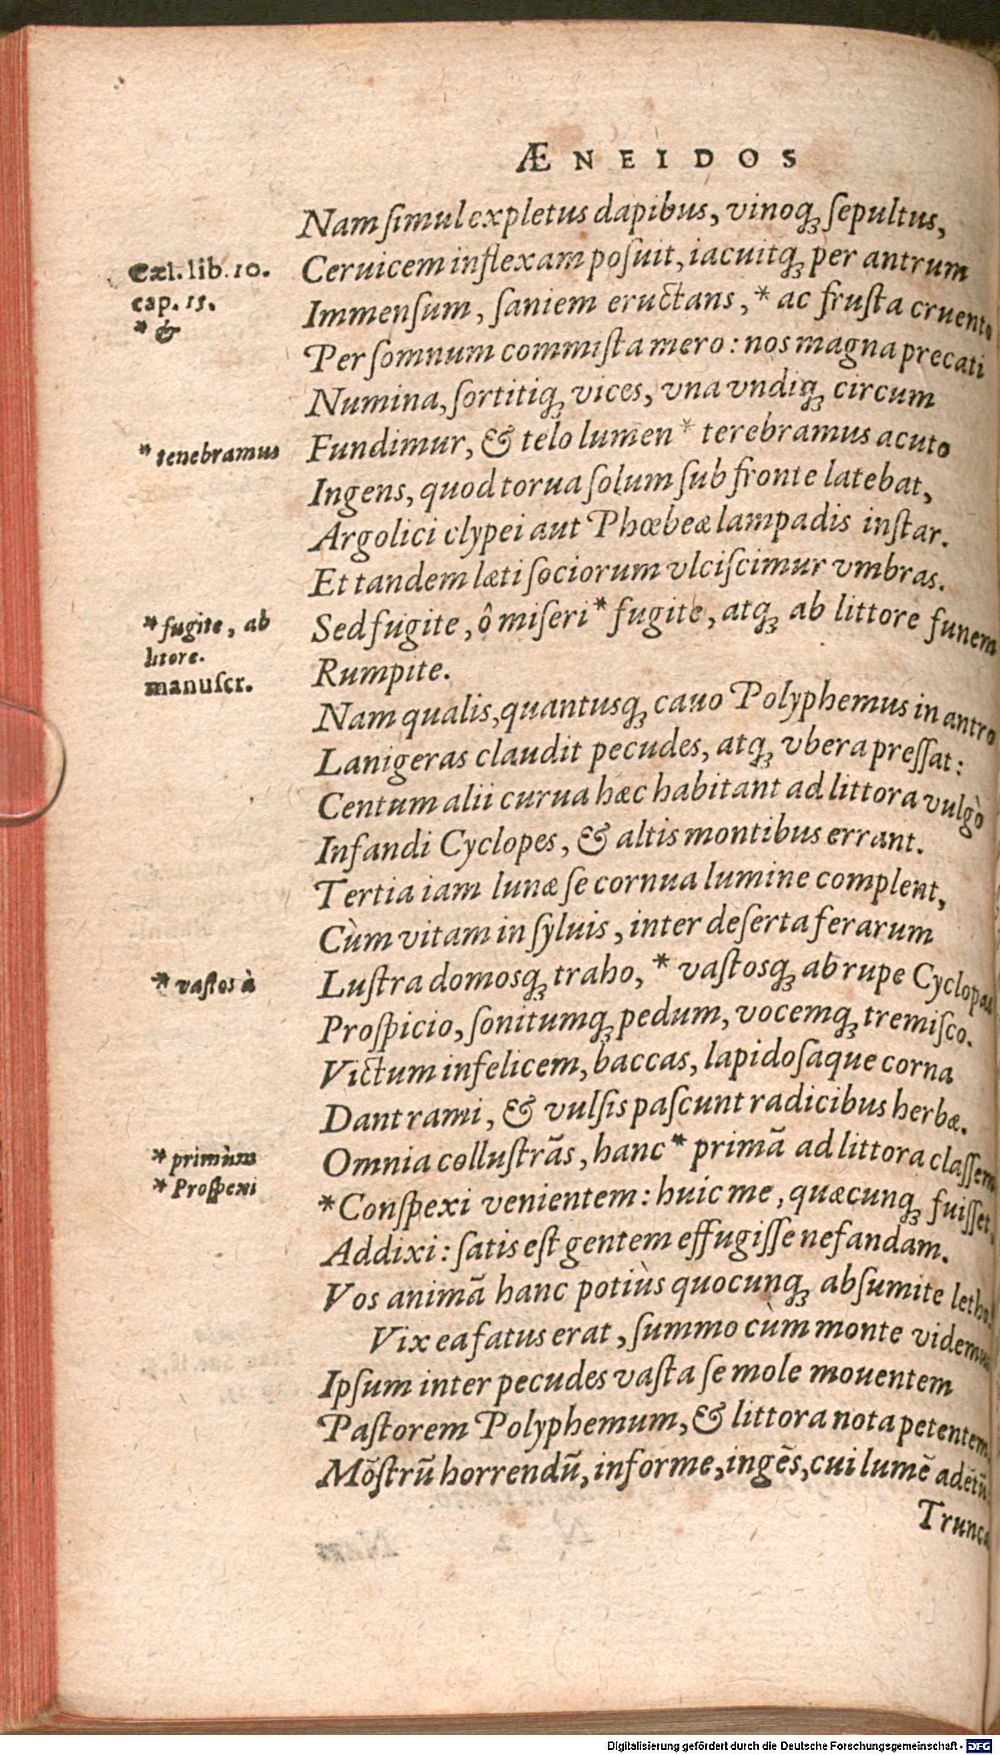 ÆNEIDOS
Nam ſimul expletus dapibus, vinoq́ꝫ ſepultus,
Ceruicem inflexam poſuit, iacuitq́ꝫ per antrum
Immenſum, ſaniem eructans, * ac fruſta cruento
Per ſomnum commiſta mero: nos magna precati
Numina, ſortitiq́ꝫ vices, vna vndiq́ꝫ circum
Fundimur, & telo lumen * terebramus acuto
Ingens, quod torua ſolum ſub fronte latebat,
Argolici clypei aut Phœbeæ lampadis inſtar.
Et tandem læti ſociorum vlciſcimur vmbras.
Sed fugite, ô miſeri * fugite, atq́ꝫ ab littore funem
Rumpite.
Nam qualis, quantusq́ꝫ cauo Polyphemus in antro
Lanigeras claudit pecudes, atq́ꝫ vbera preſſat:
Centum alii curua hæc habitant ad littora vulgò
Infandi Cyclopes, & altis montibus errant.
Tertia iam lunæ ſe cornua lumine complent,
Cùm vitam in ſyluis, inter deſerta ferarum
Luſtra domosq́ꝫ traho, * vaſtosq́ꝫ ab rupe Cyclopas
Proſpicio, ſonitumq́ꝫ pedum, vocemq́ꝫ tremiſco.
Victum infelicem, baccas, lapidoſaque corna
Dant rami, & vulſis paſcunt radicibus herbæ.
Omnia colluſtrãs, hanc * primã ad littora claſſem
* Conſpexi venientem: huic me, quæcunq́ꝫ fuiſſet,
Addixi: ſatis eſt gentem effugiſſe nefandam.
Vos animã hanc potiùs quocunq́ꝫ abſumite letho.
Vix ea fatus erat, ſummo cùm monte videmus
Ipſum inter pecudes vaſta ſe mole mouentem
Paſtorem Polyphemum, & littora nota petentem,
Mõſtrũ horrendũ, informe, ingẽs, cui lumẽ adẽtũ.
Trunca
Cæl. lib. 10.
cap. 15.
* &
* tenebramus
* fugite, ab
litore.
manuſcr.
* vaſtos à
* primùm
* Proſpexi
Digitalisierung gefördert durch die Deutsche Forschungsgemeinschaft - DFG